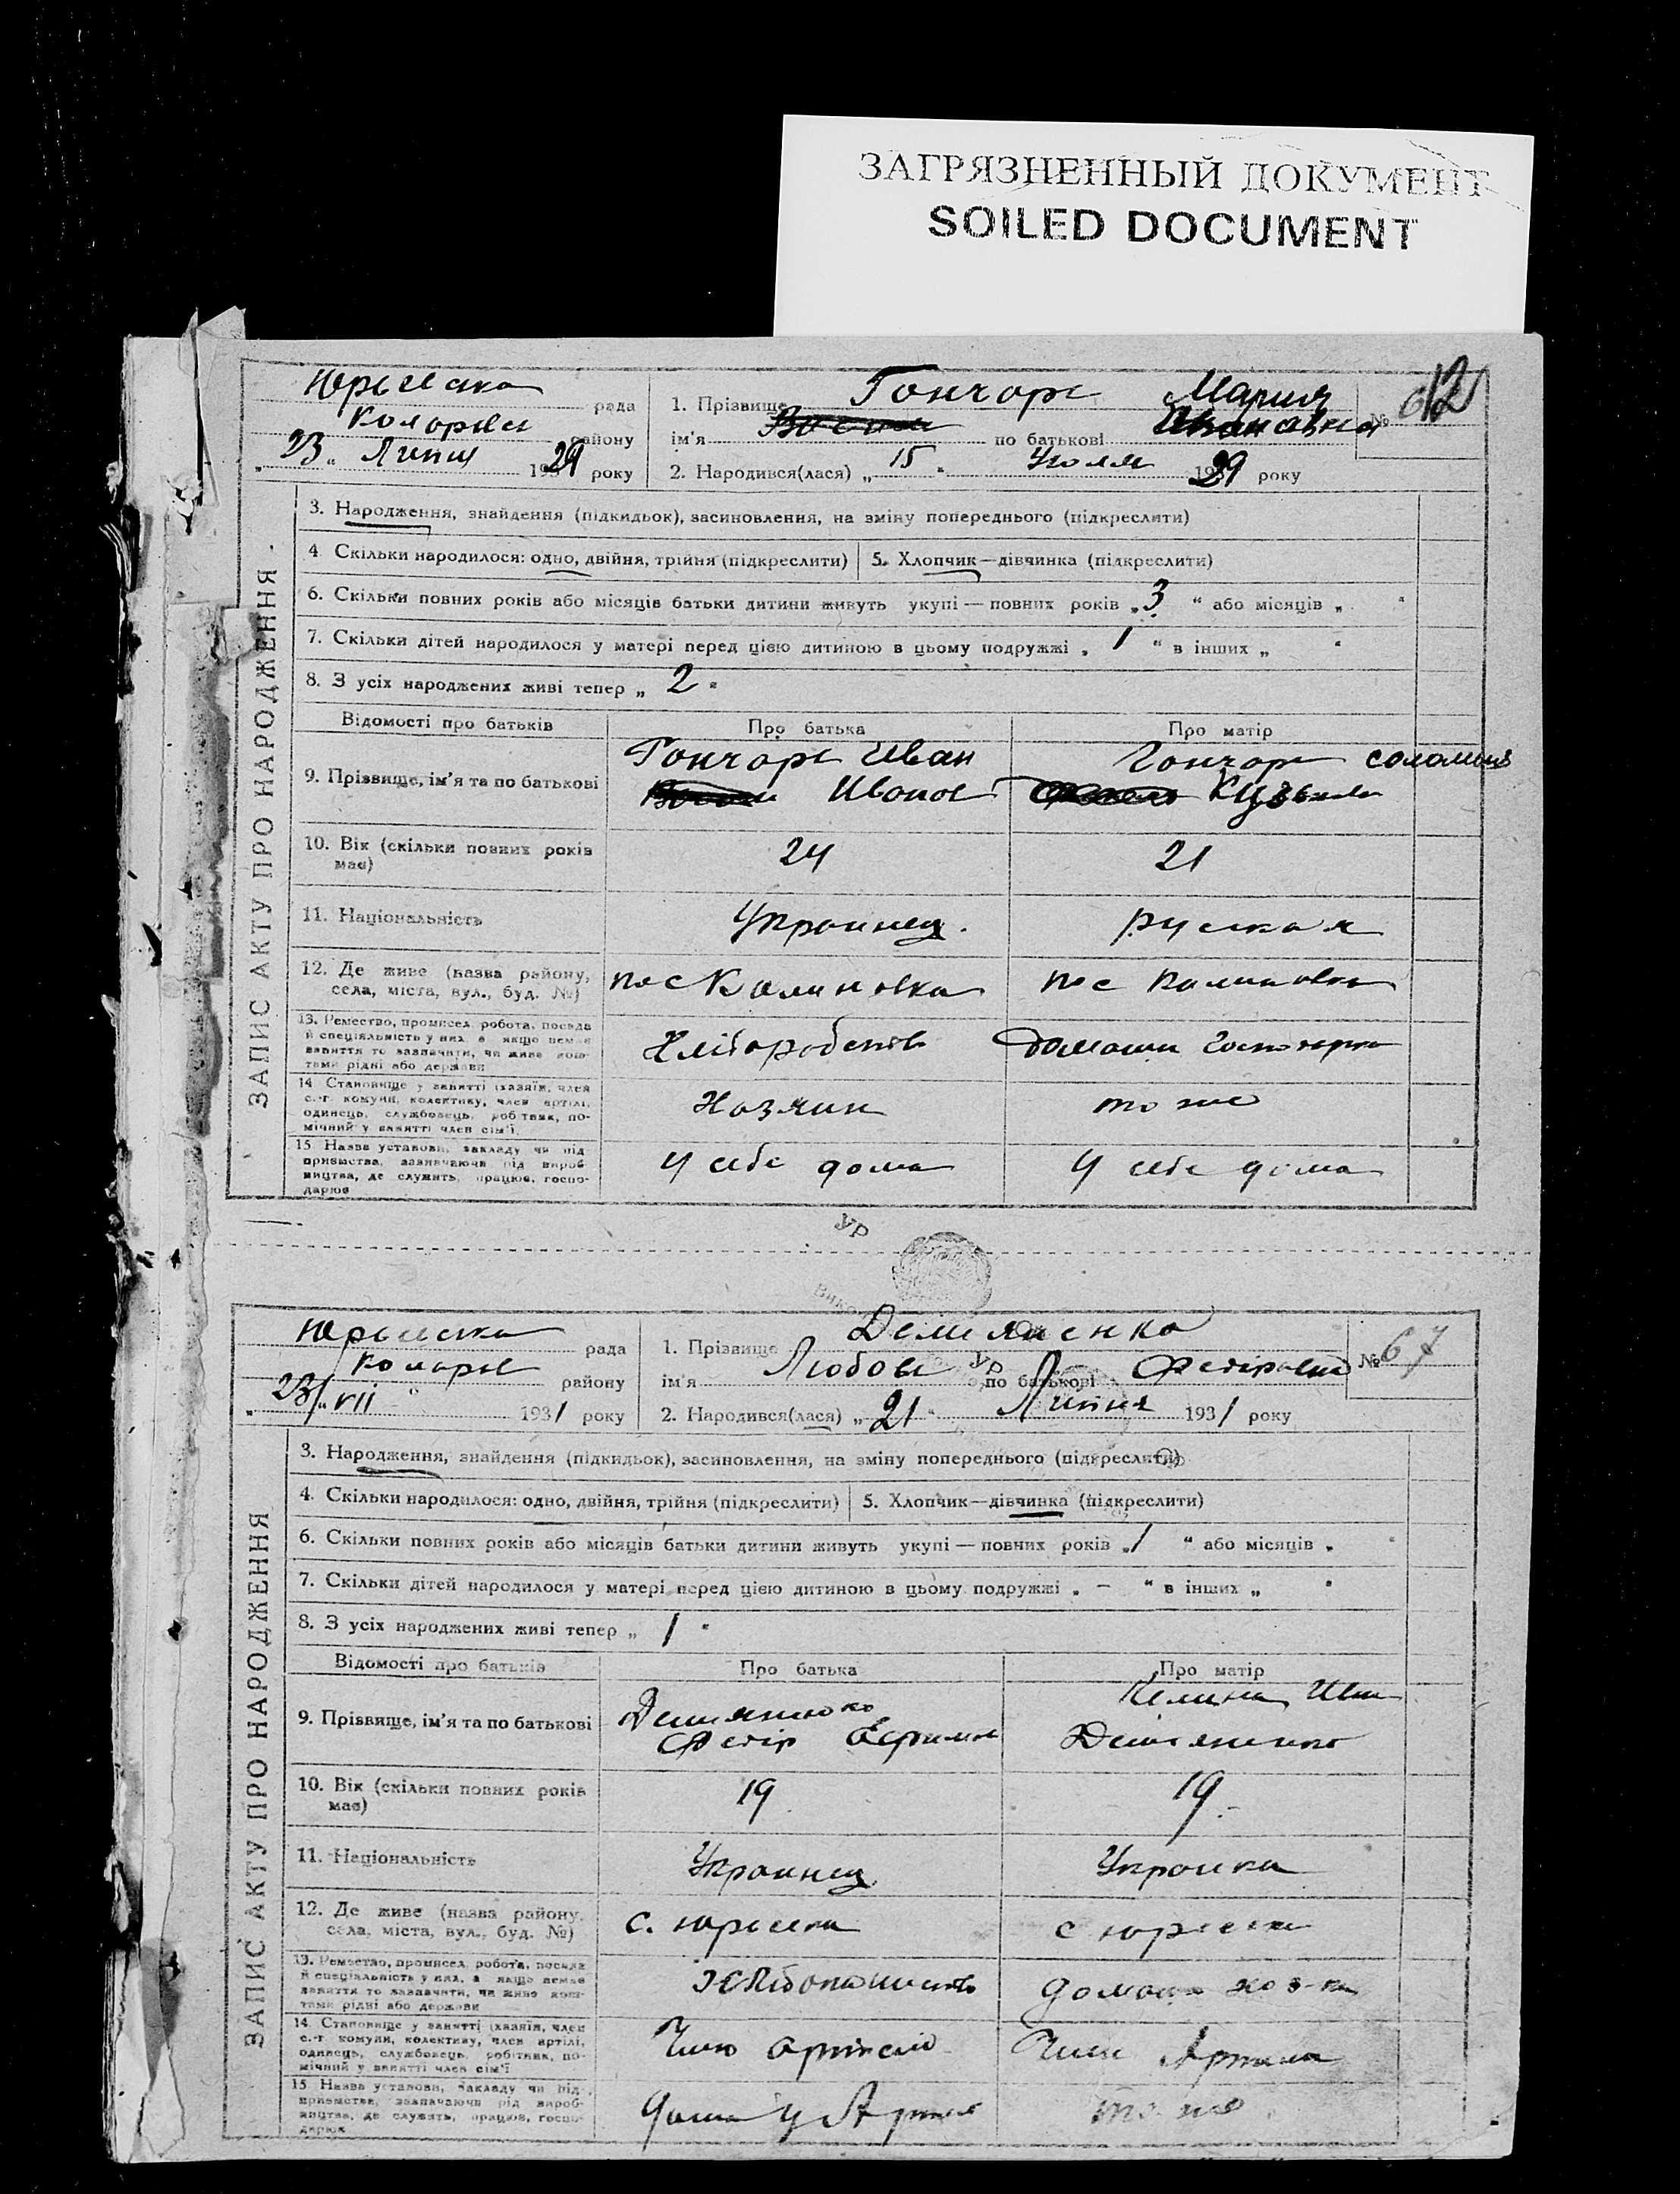 ЗАГРЯЗНЕННЫЙ ДОКУМЕНТ
SOILED DOCUMENT
ЗАПИС АКТУ ПРО НАРОДЖЕННЯ
Юрьевска рада
района
району
23 Липня 1929 року
№ 12
1. Прізвище Гончарь Мария
ім'я по батькові Ивановна
2. Народився(лася) „ 15 " Июля 1929 року
3. Народження, знайдення (підкидьок), засиновлення, на зміну попереднього (підкреслити)
4. Скільки народилося: одно, двійня, трійня (підкреслити)
5. Хлопчик—дівчинка (підкреслити)
6. Скільки повних років або місяців батьки дитини живуть укупі — повних років „ 3 " або місяців „ "
7. Скільки дітей народилося у матері перед цією дитиною в цьому подружжі „ 1 " в інших „ "
8. З усіх народжених живі тепер „ 2 "
Відомості про батьків Про батька Про матір
9. Прізвище, ім'я та по батькові Гончарь Иван Гончарь Соломия
Иванов Кузьм
10. Вік (скільки повних років має) 24 21
11. Національність Украинец. руская
12. Де живе (назва району, села, міста, вул., буд. №) пос Калиновка пос Калиновка
13. Ремество, промисел, робота, посада й спеціяльність у них, а якщо немає
заняття то зазначити, чи живе коштами рідні або держави
Хліборобств Домашн Господарка
14. Становище у занятті (хазяїн, член с.-г. комуни, колективу, член артілі,
одинець, службовець, робітник, помічний у занятті член сім'ї.
Хозяин то же
15. Назва установи, закладу чи підприємства, зазначаючи рід виробництва, де служить, працює, господарює
У себе дома У себе дома
ЗАПИС АКТУ ПРО НАРОДЖЕННЯ
Юрьевска рада
району
23/VII 1931 року
№ 67
1. Прізвище Демьяненко
ім'я Любовь по батькові Федіровна
2. Народився(лася) „ 21 " Липня 1931 року
3. Народження, знайдення (підкидьок), засиновлення, на зміну попереднього (підкреслити)
4. Скільки народилося: одно, двійня, трійня (підкреслити)
5. Хлопчик—дівчинка (підкреслити)
6. Скільки повних років або місяців батьки дитини живуть укупі — повних років „ 1 " або місяців „ "
7. Скільки дітей народилося у матері перед цією дитиною в цьому подружжі „ – " в інших „ "
8. З усіх народжених живі тепер „ 1 "
Відомості про батьків Про батька Про матір
9. Прізвище, ім'я та по батькові Демьяненко Федір Демьяненко
10. Вік (скільки повних років має) 19 19
11. Національність Украинец Украинка
12. Де живе (назва району, села, міста, вул., буд. №) с. Юрьевка с Юрьевка
13. Ремество, промисел, робота, посада й спеціяльність у них, а якщо немає
заняття то зазначити, чи живе коштами рідні або держави
домашн хоз-ка
14. Становище у занятті (хазяїн, член с.-г. комуни, колективу, член артілі,
одинець, службовець, робітник, помічний у занятті член сім'ї
Член Артели
15. Назва установи, закладу чи підприємства, зазначаючи рід виробництва, де служить, працює, господарює
то же